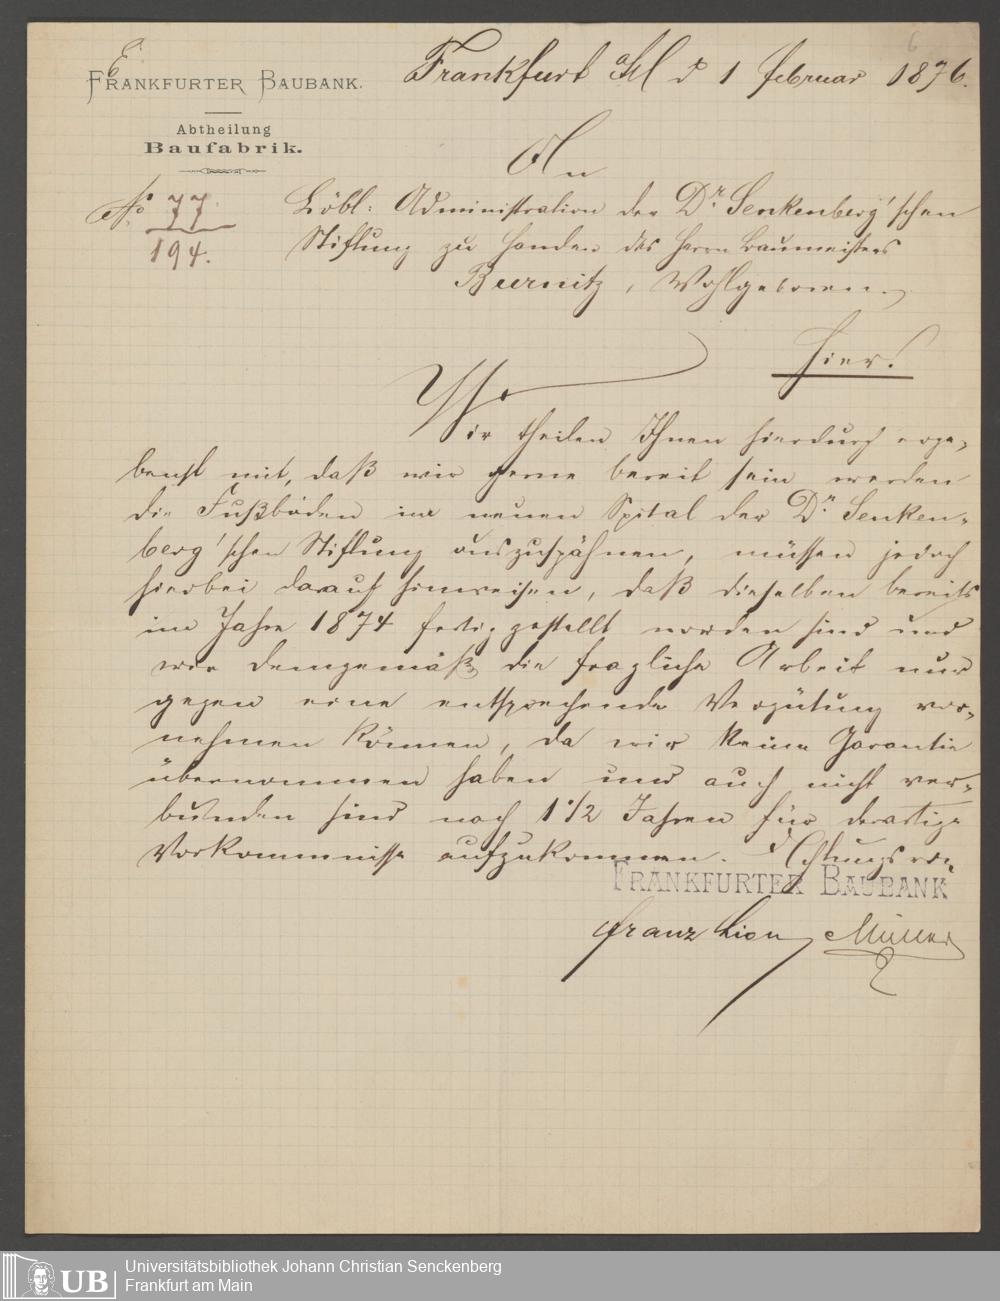 FRANKFURTER BAUBANK.
Abtheilung
Baufabrik.
No 77
194.
6
Frankfurt a/M d 1 Februar 1876.
An
Löbl: Administration der Dr. Senkenberg'schen
Stiftung zu Handen des Herrn Baumeisters
Burnitz, Wohlgeboren
Hier!
Wir theilen Ihnen hierdurch erge-
benst mit, daß wir gerne bereit sein werden
die Fußböden im neuen Spital der Dr. Senken-
berg'schen Stiftung auszuspähnen, müssen jedoch
hierbei darauf hinweisen, daß dieselben bereits
im Jahre 1874 fertig gestellt worden sind und
wir demgemäß die fragliche Arbeit nur
gegen eine entsprechende Vergütung vor-
nehmen können, da wir keine Garantie
übernommen haben und auch nicht ver-
bunden sind nach 1 1/2 Jahren für derartige
Vorkommnisse aufzukommen. Achtungsvoll
FRANKFURTER BAUBANK
Franz Lion Müller
UB
Universitätsbibliothek Johann Christian Senckenberg
Frankfurt am Main